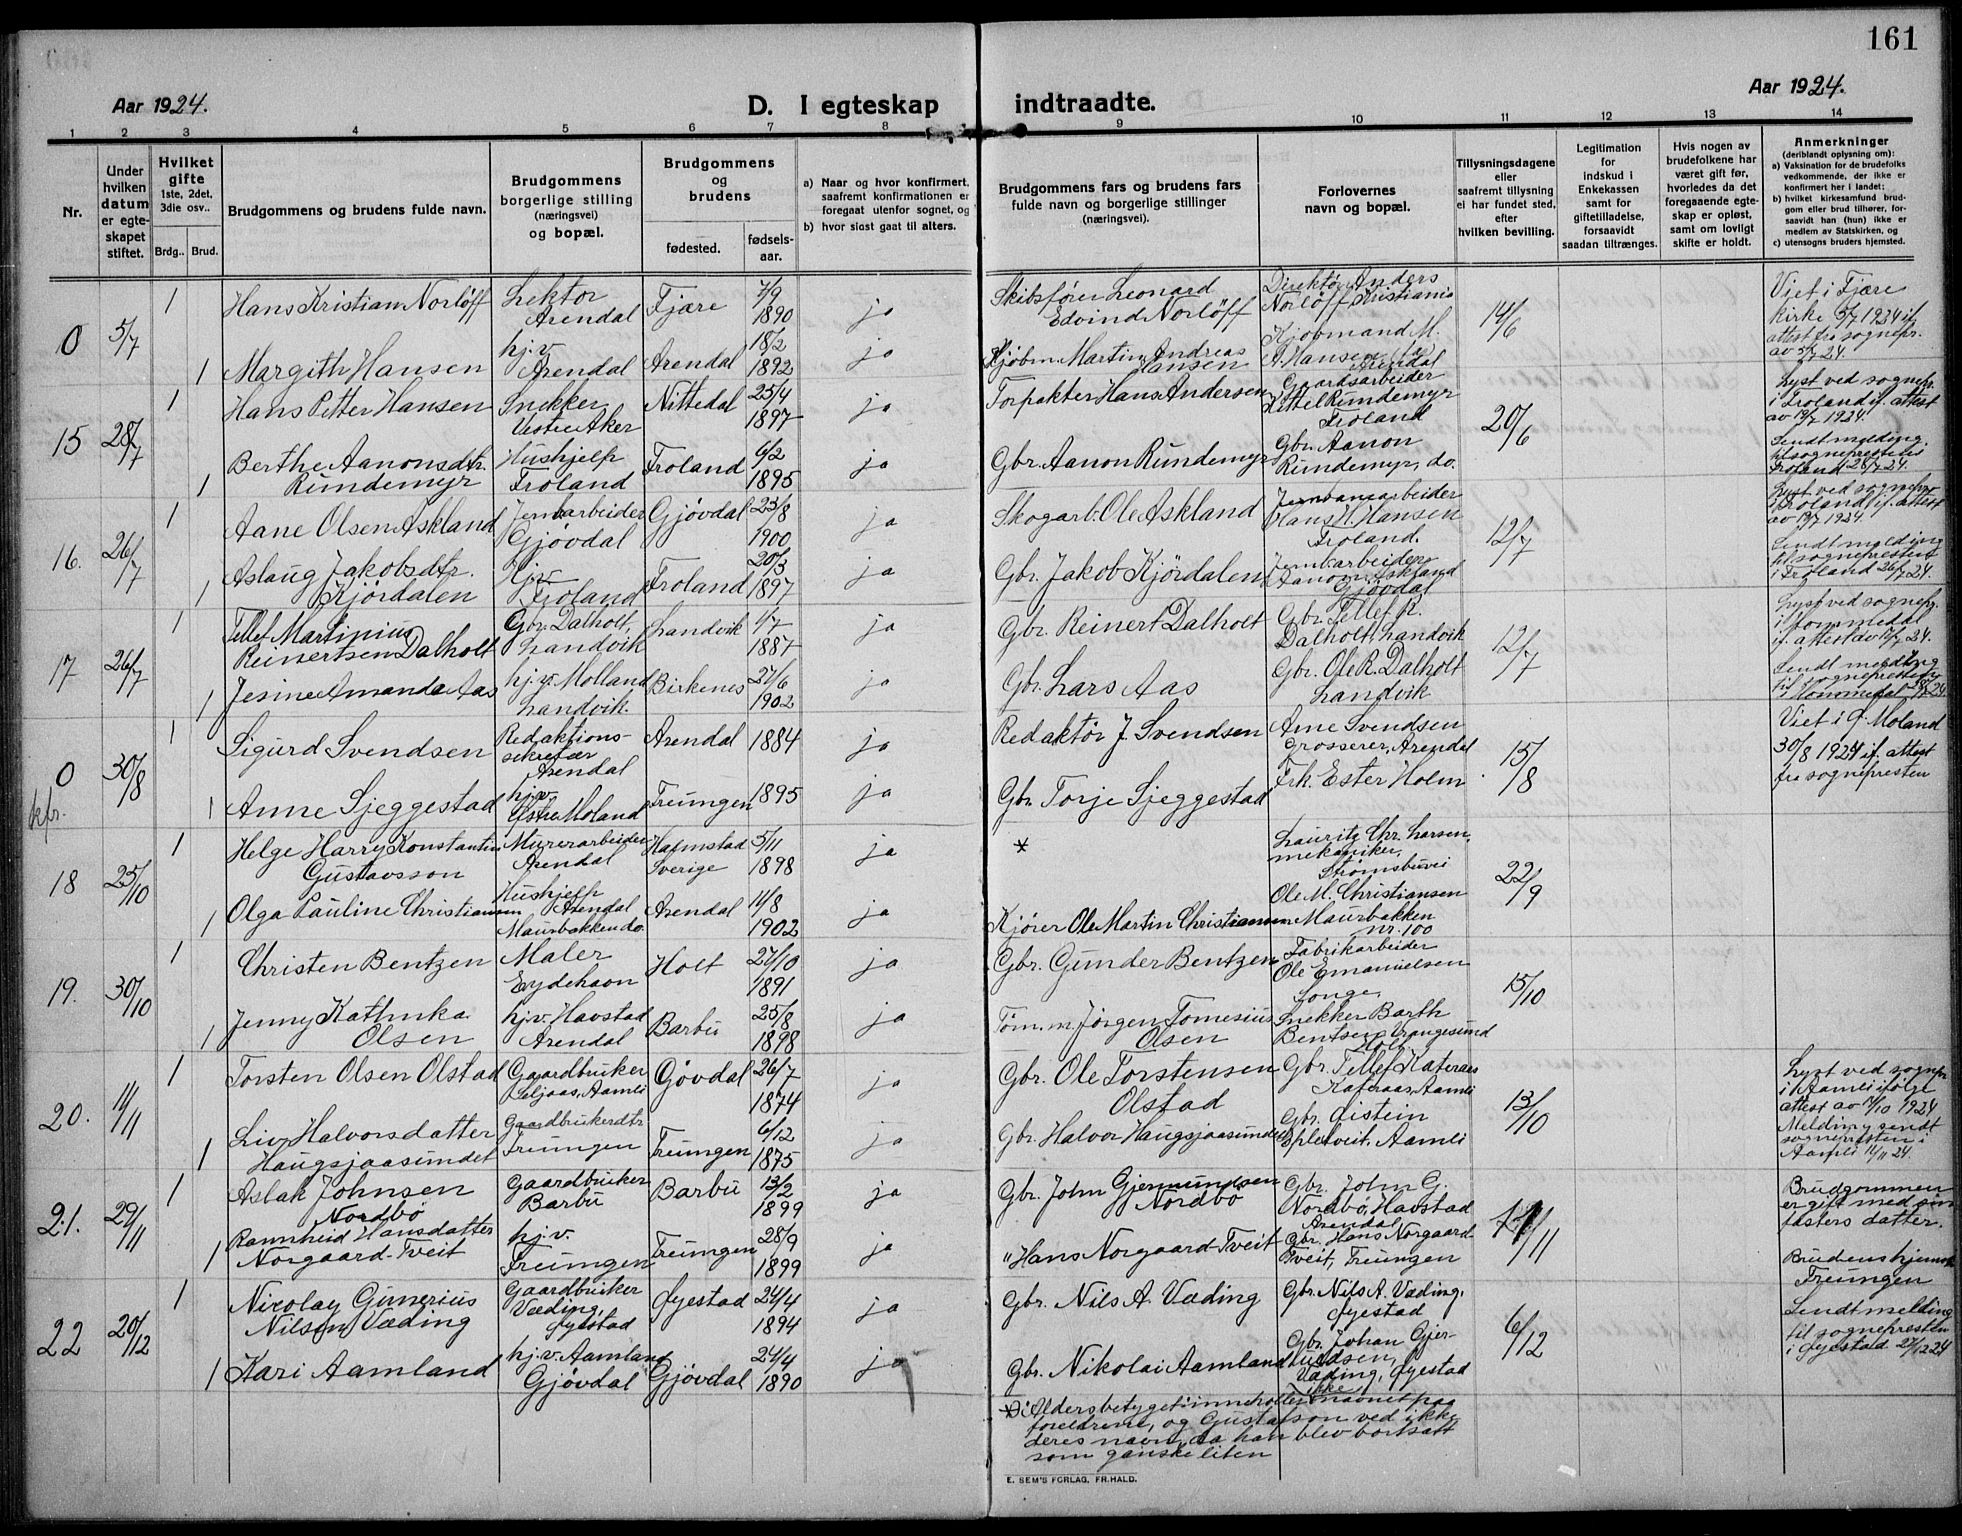 161
Aar 1924.
D. I egteskap indtraadte.
Aar 1924.
1 2 3 4 5 6 7 8 9 10 11 12 13 14
Nr.
Under hvilken datum er egteskapet stiftet.
Hvilket gifte 1ste, 2det, 3die osv..
Brdg.. Brud.
Brudgommens og brudens fulde navn.
Brudgommens borgerlige stilling (næringsvei) og bopæl.
Brudgommens og brudens
fødested.
fødsels-aar.
a) Naar og hvor konfirmert, saafremt konfirmationen er foregaat utenfor sognet, og
b) hvor sidst gaat til alters.
Brudgommens fars og brudens fars fulde navn og borgerlige stillinger (næringsvei).
Forlovernes navn og bopæl.
Tillysningsdagene eller saafremt tillysning ei har fundet sted, efter hvilken bevilling.
Legitimation for indskud i Enkekassen samt for giftetilladelse, forsaavidt saadan tiltrænges.
Hvis nogen av brudefolkene har været gift før, hvorledes da det foregaaende egteskap er opløst, samt om lovligt skifte er holdt.
Anmerkninger (deriblandt oplysning om):
a) Vaksination for de brudefolks vedkommende, der ikke er konfirmert her i landet;
b) hvilket kirkesamfund brudgom eller brud tilhører, forsaavidt han (hun) ikke er medlem av Statskirken, og
c) utensogns bruders hjemsted.
0 5/7
1 Hans Kristian Norløff Lektor Arendal Fjære 7/9 1890 ja Skibsfører Leonard Edvind Norløff Direktør Anders Norløff Kristiania 14/6 Viet i Fjære kirke 5/7 1924 if. attest fra sognepr. av 5/7 24.
1 Margith Hansen hj.v. Arendal Arendal 18/2 1892 ja Kjøbm. Martin Andreas Hansen Kjøbmand M. A. Hansen Arendal
15 28/7
1 Hans Petter Hansen Snekker Vestre Aker Nittedal 25/4 1897 ja Forpakter Hans Andersen Gaardsarbeider Kittel Rundemyr Froland 20/6 Lyst ved sognepr. i Froland if. attest av 19/7 1924.
1 Berthe Aanonsdtr. Rundemyr Hushjelp Froland Froland 6/2 1895 ja Gbr. Aanon Rundemyr Gbr. Aanon Rundemyr, do. Sendt melding til sognepresten i Froland 28/7 24.
16. 26/7
1 Aane Olsen Askland Jernbarbeider Gjøvdal Gjøvdal 23/8 1900 ja Skogarb. Ole Askland Jernbanearbeider Hans H. Hansen Froland. 12/7 Lyst ved sognepr. i Froland if. attest av 19/7 1924.
1 Aslaug Jakobsdtr. Kjørdalen Hj.v. Froland Froland 20/3 1897 ja Gbr. Jakob Kjørdalen Jernbarbeider Aanon Askland Gjøvdal Sendt melding til sognepresten i Froland 26/7 24.
17 26/7
1 Tellef Martinius Reinertsen Dalholt Gbr. Dalholt, Landvik Landvik 4/7 1887 ja Gbr. Reinert Dalholt Gbr. Tellef R. Dalholt, Landvik 12/7 Lyst ved sognepr. i Hommedal if. attest av 12/7 24.
1 Jesine Amanda Aas hj.v. Molland Landvik. Birkenes 27/6 1902 ja Gbr. Lars Aas Gbr. Ole R. Dalholt Landvik Sendt melding til sogneprest i Hommedal 28/7 24
0 kfr. 30/8
1 Sigurd Svendsen Redaktions-sekretær Arendal Arendal 1884 ja Redaktør J. Svendsen Arne Svendsen Grosserer, Arendal 15/8 Viet i Ø. Moland 30/8 1924 if. attest fra sognepresten
1 Anne Sjeggestad hj.v. Østre Moland Treungen 1895 ja Gbr. Torje Sjeggestad Frk. Ester Holm
18 25/10
1 Helge Harry Konstantin Gustavsson Murerarbeider Arendal Halmstad Sverige 5/11 1898 ja * Lauritz Chr. Larsen, mekaniker, Strømsbuvei 22/9
1 Olga Pauline Christiansen Hushjelp Arendal Maurbakken do. Arendal 11/8 1902 ja Kjører Ole Martin Christiansen Ole M. Christiansen Maurbakken nr. 100
19. 30/10
1 Christen Bentzen Maler Eydehavn Holt 27/10 1891 ja Gbr. Gunder Bentzen Fabrikarbeider Ole Emanuelsen Songe, 15/10
1 Jenny Kathinka Olsen hj.v. Havstad Arendal Barbu 25/8 1898 ja Tøm.m. Jørgen Tomesius Olsen Snekker Barth Bentsen Vrangesund Holt
20. 11/11
1 Torsten Olsen Olstad Gaardbruker Seljaas, Aamli Gjøvdal 26/7 1874 ja Gbr. Ole Torstensen Olstad Gbr. Tellef Kateraas Kateraas, Aamli 13/10 Lyst ved sognepr. i Aamli ifølge attest av 19/10 1924 Melding sendt sognepresten i Aamli 11/11 24.
1 Liv Halvorsdatter Haugsjaasundet Gaardbrukerdtr Treungen Treungen 6/12 1875 ja Gbr. Halvor Haugsjaasundet Gbr. Eistein Epletveit, Aamli
21. 29/11
1 Aslak Johnsen Nordbø Gaardbruker Barbu Barbu 13/2 1899 ja Gbr. John Gjermundsen Nordbø Gbr. John G. Nordbø, Havstad Arendal /11 Brudgommen er gift med sin fasters datter.
1 Rannheid Hansdatter Norgaard-Tveit hj.v. Treungen Treungen 28/9 1899 ja " Hans Norgaard-Tveit Gbr. Hans Norgaard-Tveit, Treungen Brudens hjemst. Treungen
22 20/12
1 Nicolay Gunerius Nilsen Væding Gaardbruker Væding, Øyestad Øyestad 24/4 1894 ja Gbr. Nils A. Væding Gbr. Nils A. Væding, Øyestad 6/12 Sendt melding til sognepresten i Øyestad 27/12 24
1 Kari Aamland hj.v. Aamland Gjøvdal Gjøvdal 24/4 1890 ja Gbr. Nikolai Aamland Gbr. Johan Gjer-tudsen, Væding, Øyestad
* Aldersbetyget inneholder ikke navnet paa
foreldrene, og Gustafson ved ikke
deres navn, da han blev bortsatt
som ganske liten
E. SEM'S FORLAG, FR.HALD.